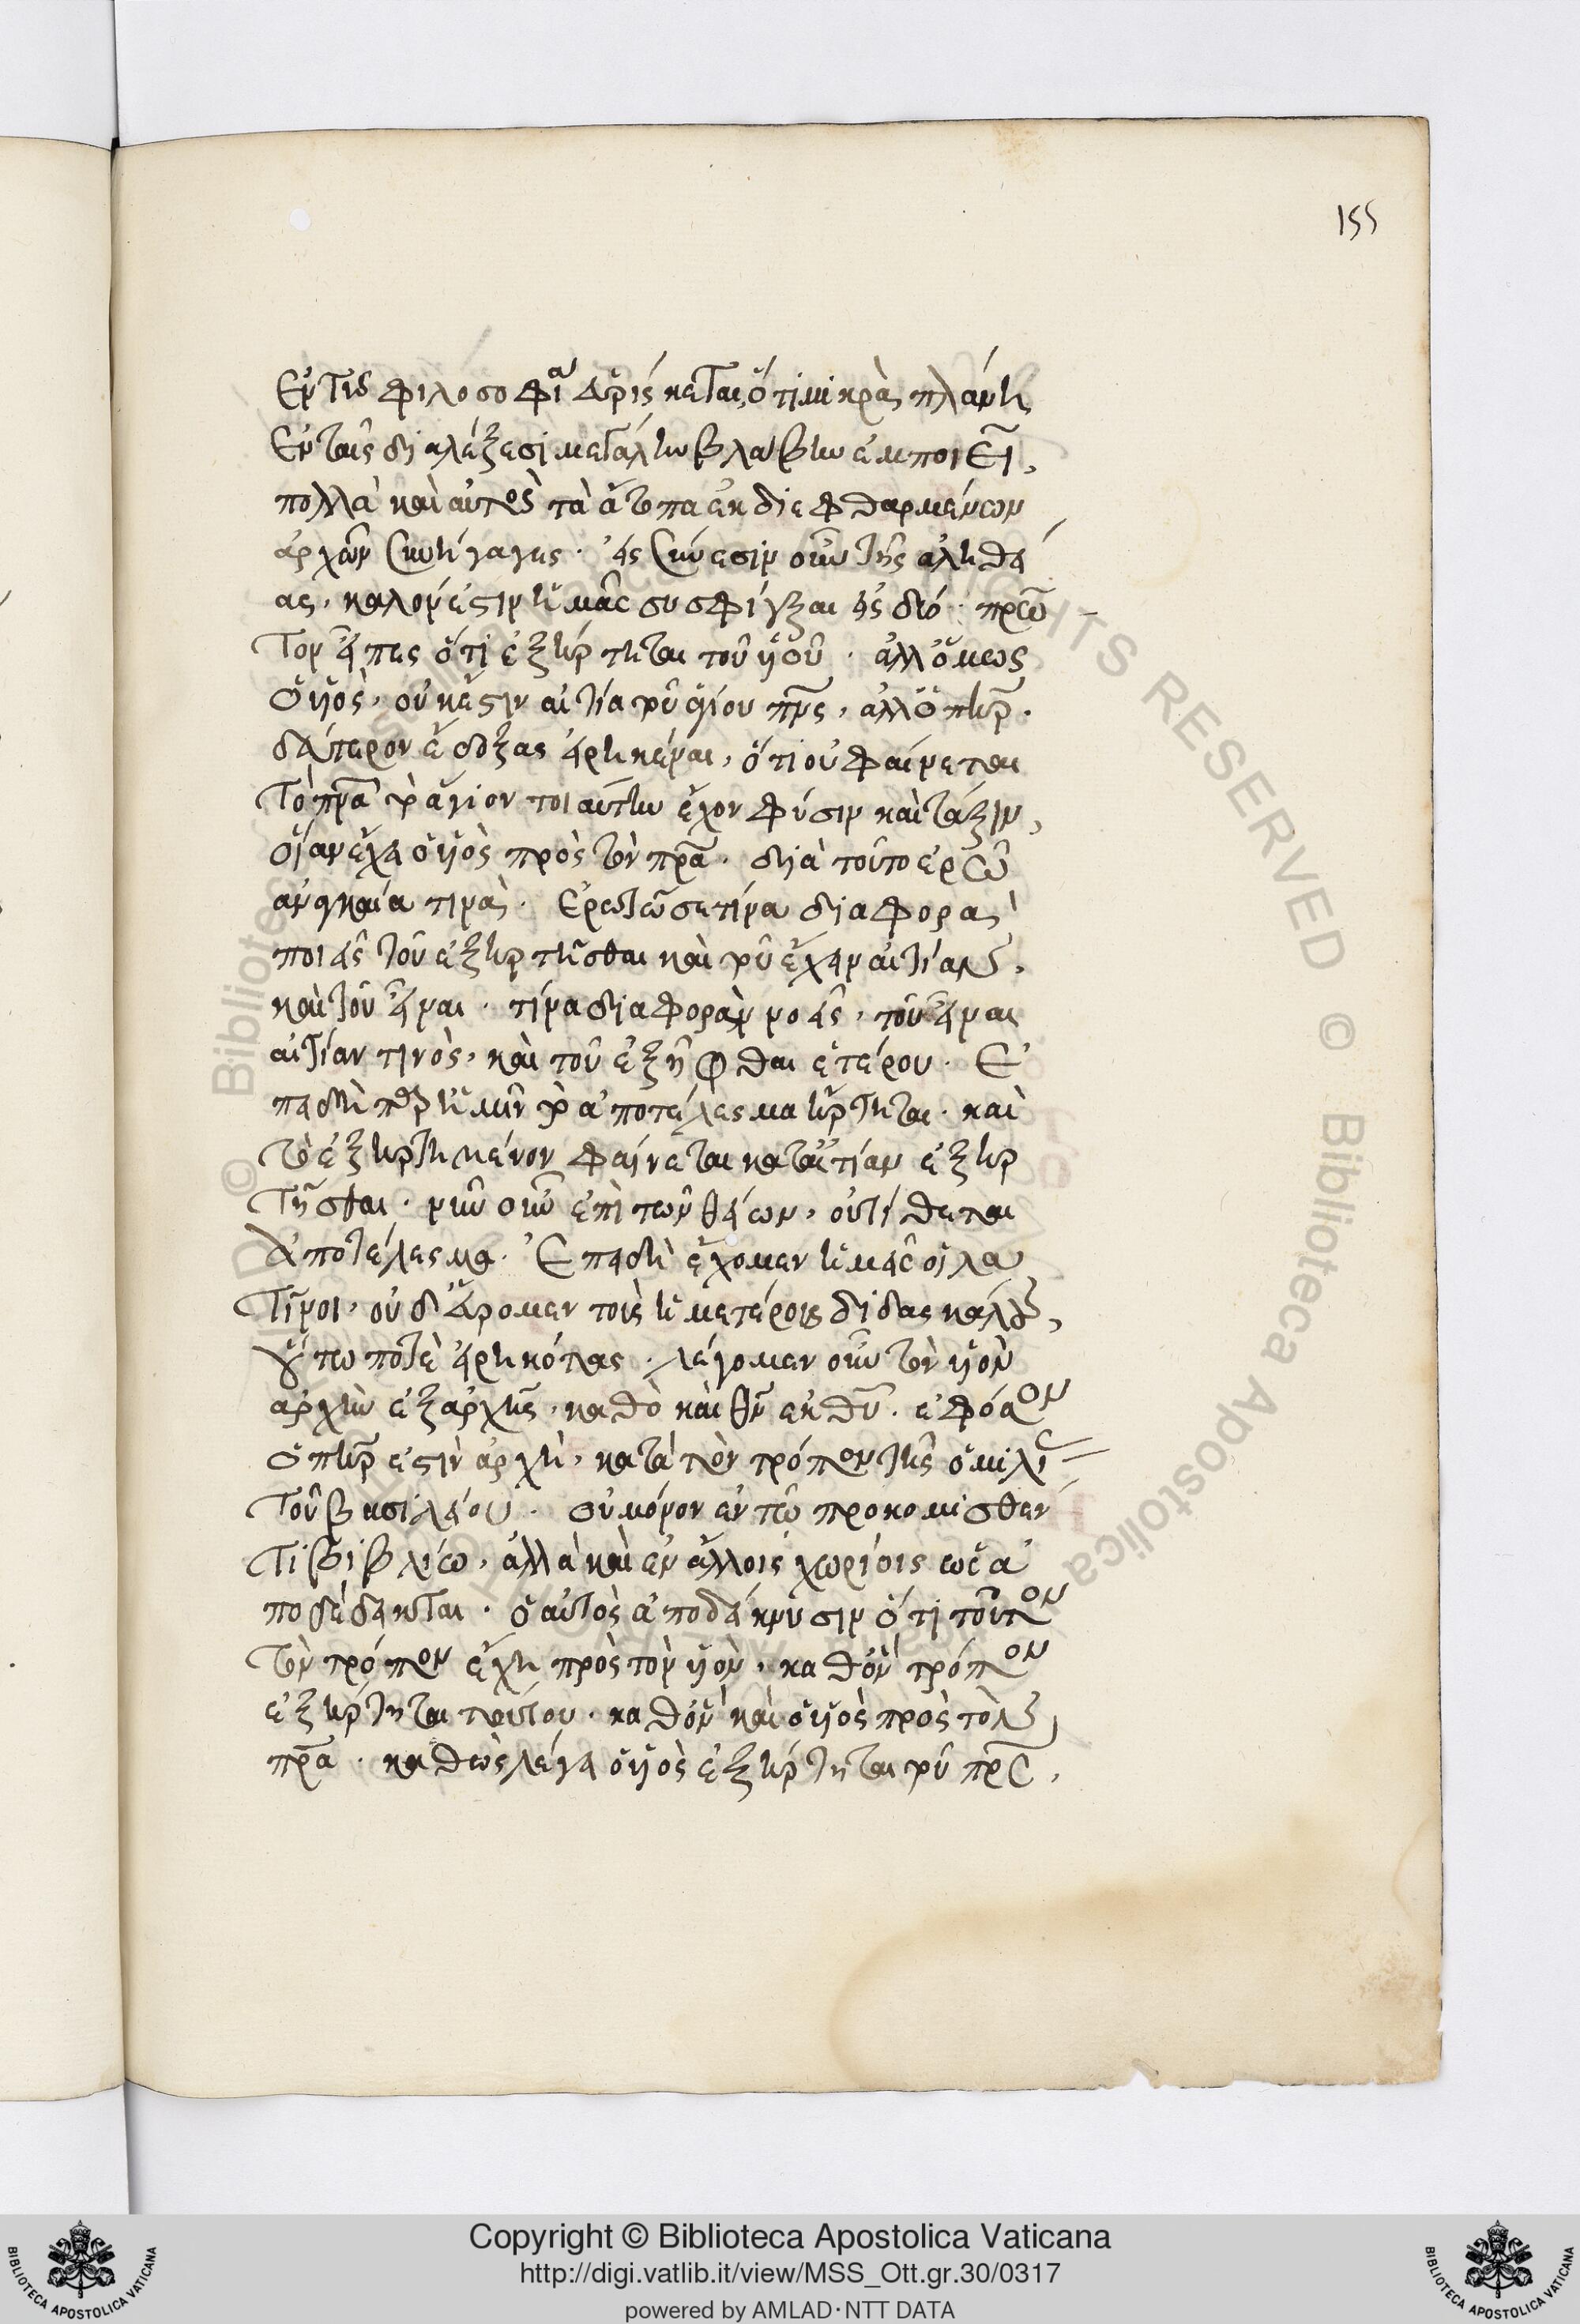 155
Ἐν τῆ φιλοσοφία εὑρίσκεται, ὅτι μικρὰ πλάνη
ἐν ταῖς διαλέξεσι μεγάλην βλάβην ἐμποιεῖ,
πολλὰ καὶ αὐτὸς τὰ ἄτοπα ἐκ διεφθαρμένων
ἀρχῶν συνήγαγες. εἰς σύνεσιν οὖν τῆς ἀληθεί
ας, καλόν ἐστιν ἡμᾶς συσφίγξαι εἰς δύο. πρῶ
τον εἶπες ὅτι ἐξήρτηται τοῦ υἱοῦ. ἀλλ' ὅμως
ὁ υἱὸς, οὐκ ἔστιν αἰτία τοῦ ἁγίου πνς, ἀλλ' ὁ πηρ.
δεύτερον ἔδοξας εἰρηκέναι, ὅτι οὐ φαίνεται
τὸ πνα τὸ ἅγιον τοιαύτην ἔχον φύσιν καὶ τάξιν,
οἵαν ἔχει ὁ υἱὸς πρὸς τὸν πρα. διὰ τοῦτο ἐρῶ
ἀναγκαῖά τινα. ἐρωτῶ σε τίνα διαφορὰν
ποιεῖς τοῦ ἐξηρτῆσθαι καὶ τοῦ ἔχειν αἰτίαν,
καὶ τοῦ εἶναι. τίνα διαφορὰν νοεῖς, τοῦ εἶναι
αἰτίαν τινὸς, καὶ τοῦ ἐξῆφθαι ἑτέρου. ἐ
πειδὴ παρ' ἡμῖν τὸ ἀποτέλεσμα ἤρτηται. καὶ
τὸ ἐξηρτημένον φαίνεται κατ' αἰτίαν ἐξηρ
τῆσθαι. νῦν οὖν ἐπὶ τῶν θείων, οὐ τίθεται
ἀποτέλεσμα. ἐπειδὴ ἔχομεν ἡμεῖς οἱ λα
τῖνοι, οὐδ' εὕρομεν τοὺς ἡμετέρους διδασκάλους,
οὕτω ποτὲ εἰρηκότας. λέγομεν οὖν τὸν υἱὸν
ἀρχὴν ἐξ ἀρχῆς, καθὸ καὶ θν ἐκ θυ. ἐφ' ὅσον
ὁ πηρ ἐστὶν ἀρχὴ, κατὰ τὸν τρόπον τῆς ὁμιλί
τοῦ βασιλείου. οὐ μόνον ἐν τῶ προκομισθέν
τι βιβλίω, ἀλλὰ καὶ ἐν ἄλλοις χωρίοις ὡς ἀ
ποδέδεικται. ὁ αὐτὸς ἀποδείκνυσιν ὅτι τοῦτον
τὸν τρόπον ἔχη πρὸς τὸν υἱὸν, καθ' ὃν τρόπον
ἐξήρτηται τούτου. καθ' ὃν καὶ ὁ υἱὸς πρὸς τὸν
πρα. καθὼς λέγει ὁ υἱὸς ἐξήρτηται τοῦ πρς,
© Biblioteca Apostolica Vaticana
Copyright © Biblioteca Apostolica Vaticana
http://digi.vatlib.it/view/MSS_Ott.gr.30/0317
powered by AMLAD·NTT DATA
BIBLIOTECA APOSTOLICA VATICANA
BIBLIOTECA APOSTOLICA VATICANA